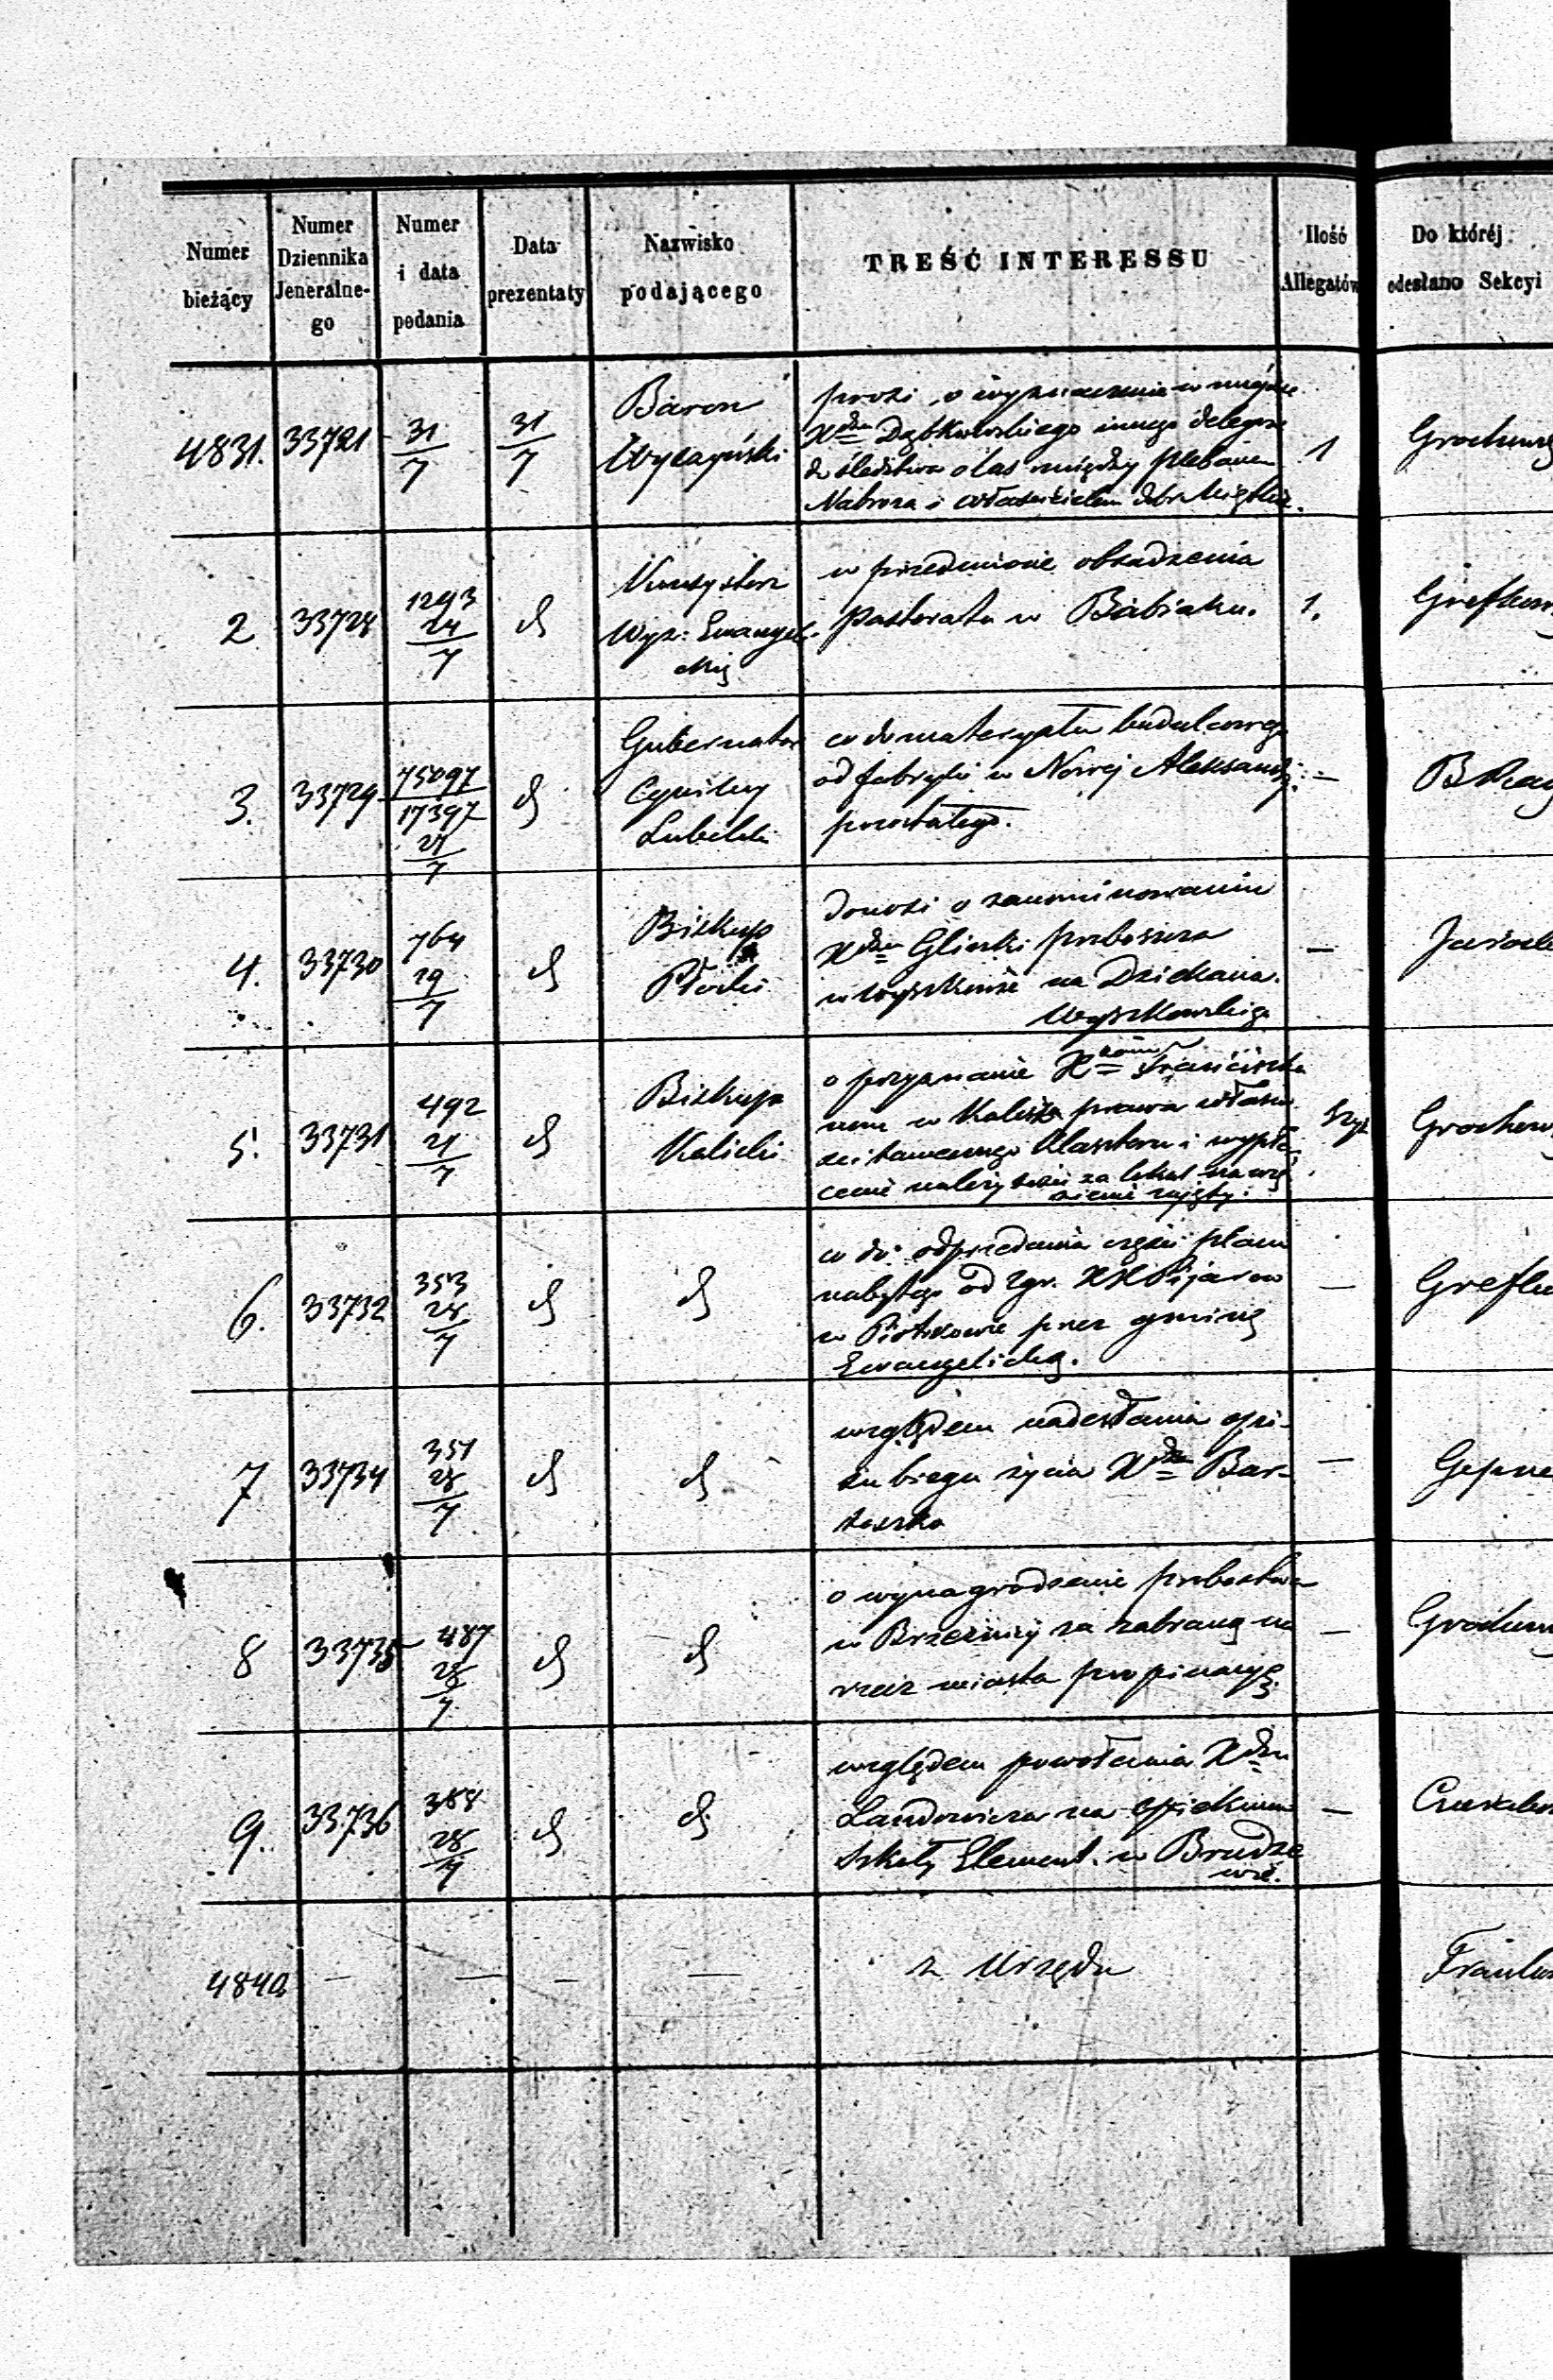 Numer bieżący | Numer Dziennika Jeneralne-go | Numer i data podania | Data prezentaty | Nazwisko podającego | TREŚĆ INTERESSU | Ilość Allegatów | Do któréj odesłano Sekcyi
4831. 33721 31/7 31/7 Baron
prosi o wyznaczenie w miejsce
Xdza Dąbkowskiego innego delegow
do śledztwa o las między plebanem
Nabroża i właścicielem dóbr 1
2 33728 1293 24/7 d Konsystorz
Wyz: Ewangeli-
cki
w przedmiocie obsadzenia
pastoratu w Babiaku. 1.
3. 33729 75097 17397 27/7 d Gubernator
Cywilny
Lubelski
co do materyału budulcowego
od fabryki w Nowej Aleksandr:
pozostałego. —
4. 33730 764 29/7 d Biskup
Płocki
donosi o zanominowaniu
Xdza Glinki proboszcza
w Wyszkowie na Dziekana
Wyszkowskiego —
5. 33731 492 27/7 d Biskup
Kaliski
o przyznanie XXom Franciszka
nom w Kaliszu prawa własno
ści tamecznego Klasztoru i wypła
cenie należytości za lokal na wię
zienie zajęty.
6. 33732 353 28/7 d d
co do odprzedania części placu
nabytego od Zgr. XX Pijarów
w Piotrkowie przez gminę
Ewangelicką. —
7 33734 351 28/7 d d
względem nadesłania opi-
su biegu życia Xdza Bar-
toszka —
8 33735 487 28/7 d d
o wynagrodzenie probostwa
w Brzeźnicy za zabraną na
rzecz miasta propinacyę —
9. 33736 388 28/7 d d
względem powołania Xdza
Landowicza na opiekuna
Szkoły Element. w Brudze
wie. —
4840. — — — —
z Urzędu